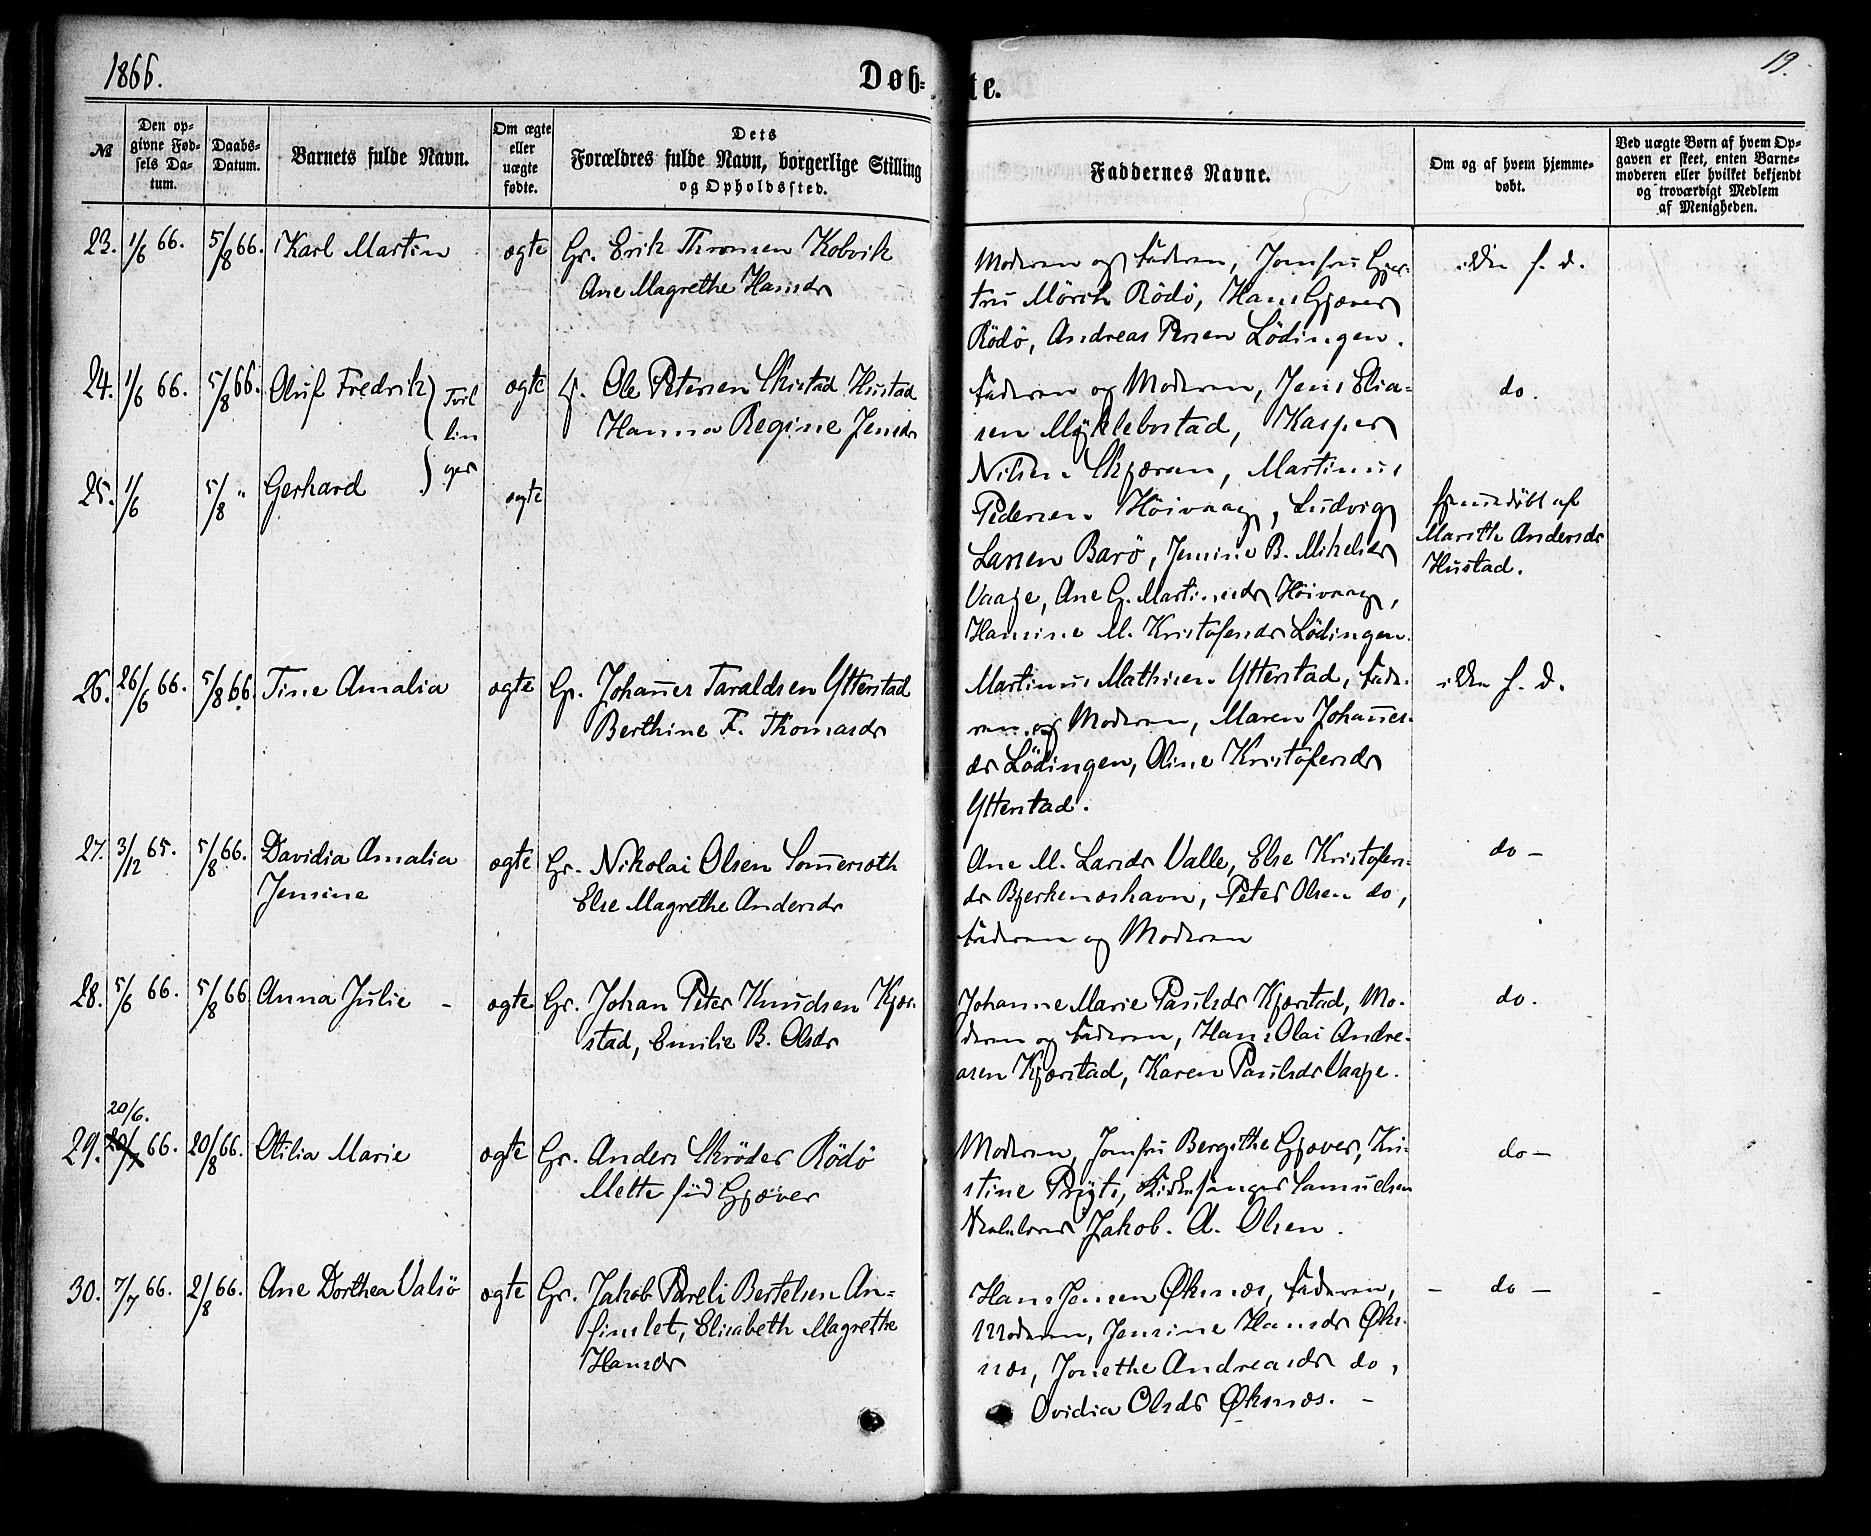 1866.
Døb-
te.
19.
№
Den op-
givne Fød-
sels Da-
tum.
Daabs-
Datum.
Barnets fulde Navn.
Om ægte
eller
uægte
fødte.
Dets
Forældres fulde Navn, borgerlige Stilling
og Opholdssted.
Faddernes Navne.
Om og af hvem hjemme-
døbt.
Ved uægte Børn af hvem Op-
gaven er skeet, enten Barne-
moderen eller hvilket bekjendt
og troværdigt Medlem
af Menigheden.
23. 1/6 66. 5/8 66. Karl Martin ægte Gr. Erik Thomsen Kobvik
Ane Magrethe Hansdr
Moderen og Faderen, Jomfru Gjer-
tru Mörch Rödö, Hans Gjæver
Rödö, Andreas Persen Lödingen.
ikke h. d.
24. 1/6 66. 5/8 66. Oluf Fredrik Tvil ægte Ole Petersen Skistad Hustad
lin Hanna Regine Jensdr
25. 1/6 5/8 " Gerhard ger ægte
Faderen og Moderen, Jens Elia-
sen Myklebostad, Kasper
Nilsen Skjæran, Martinus
Pedersen Höivaag, Ludvig
Larsen Barö, Jensine B. Mikelsdr
Vaage, Ane G. Martinusdr Höivaag,
Hansine M. Kristofersdr Lödingen.
do.
hjemmedöbt af
Marith Andersdr
Hustad.
26. 26/6 66. 5/8 66. Tine Amalia ægte Gr. Johannes Taraldsen Ytterstad
Berthine F. Thomasdr
Martinus Mathisen Ytterstad, Fade-
ren og Moderen, Maren Johannes-
dr Lödingen, Oline Kristofersdr
Ytterstad.
ikke h. d.
27. 3/12 65. 5/8 66. Davidia Amalia ægte Gr. Nikolai Olsen Sommersæth
Jensine Else Magrethe Andersdr
Ane M. Larsdr Valle, Else Kristofers-
dr Bjerkenæshavn, Peter Olsen do,
Faderen og Moderen
do -
28. 5/6 66. 5/8 66 Anna Julie - ægte Gr. Johan Peter Knudsen Kjær-
stad, Emilie B. Olsdr
Johanne Marie Paulsdr Kjærstad, Mo-
deren og Faderen, Hans Olai Andre-
asen Kjærstad, Karen Paulsdr Vaage.
do.
20/6.
29. 20/7 66. 20/8 66. Otilia Marie ægte Gr. Anders Skröder Rödö
Mette föd Gjæver
Moderen, Jomfru Bergithe Gjæver, Kri-
stine Pryts, Kirkesanger Samuelsen
Jakob. A. Olsen.
do -
30. 7/7 66. 2/8 66. Ane Dorthea Valsö ægte Gr. Jakob Pareli Bertelsen An-
finslet, Elisabeth Magrethe
Hansdr
Hans Jensen Øksnæs, Faderen,
Moderen, Jensine Hansdr Øks-
næs, Jonethe Andreasdr do,
Ovidia Olsdr Øksnæs. -
- do - -